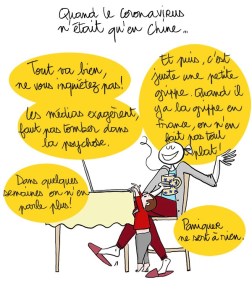 Quand le coronavirus
n'était qu'en Chine...
Tout va bien,
ne vous inquiétez pas!
Les médias exagèrent,
faut pas tomber dans
la psychose.
Et puis, c'est
juste une petite
grippe. Quand il
y a la grippe en
France, on n'en
fait pas tout
un plat!
Dans quelques
semaines on n'en
parle plus!
Paniquer
ne sert à rien.